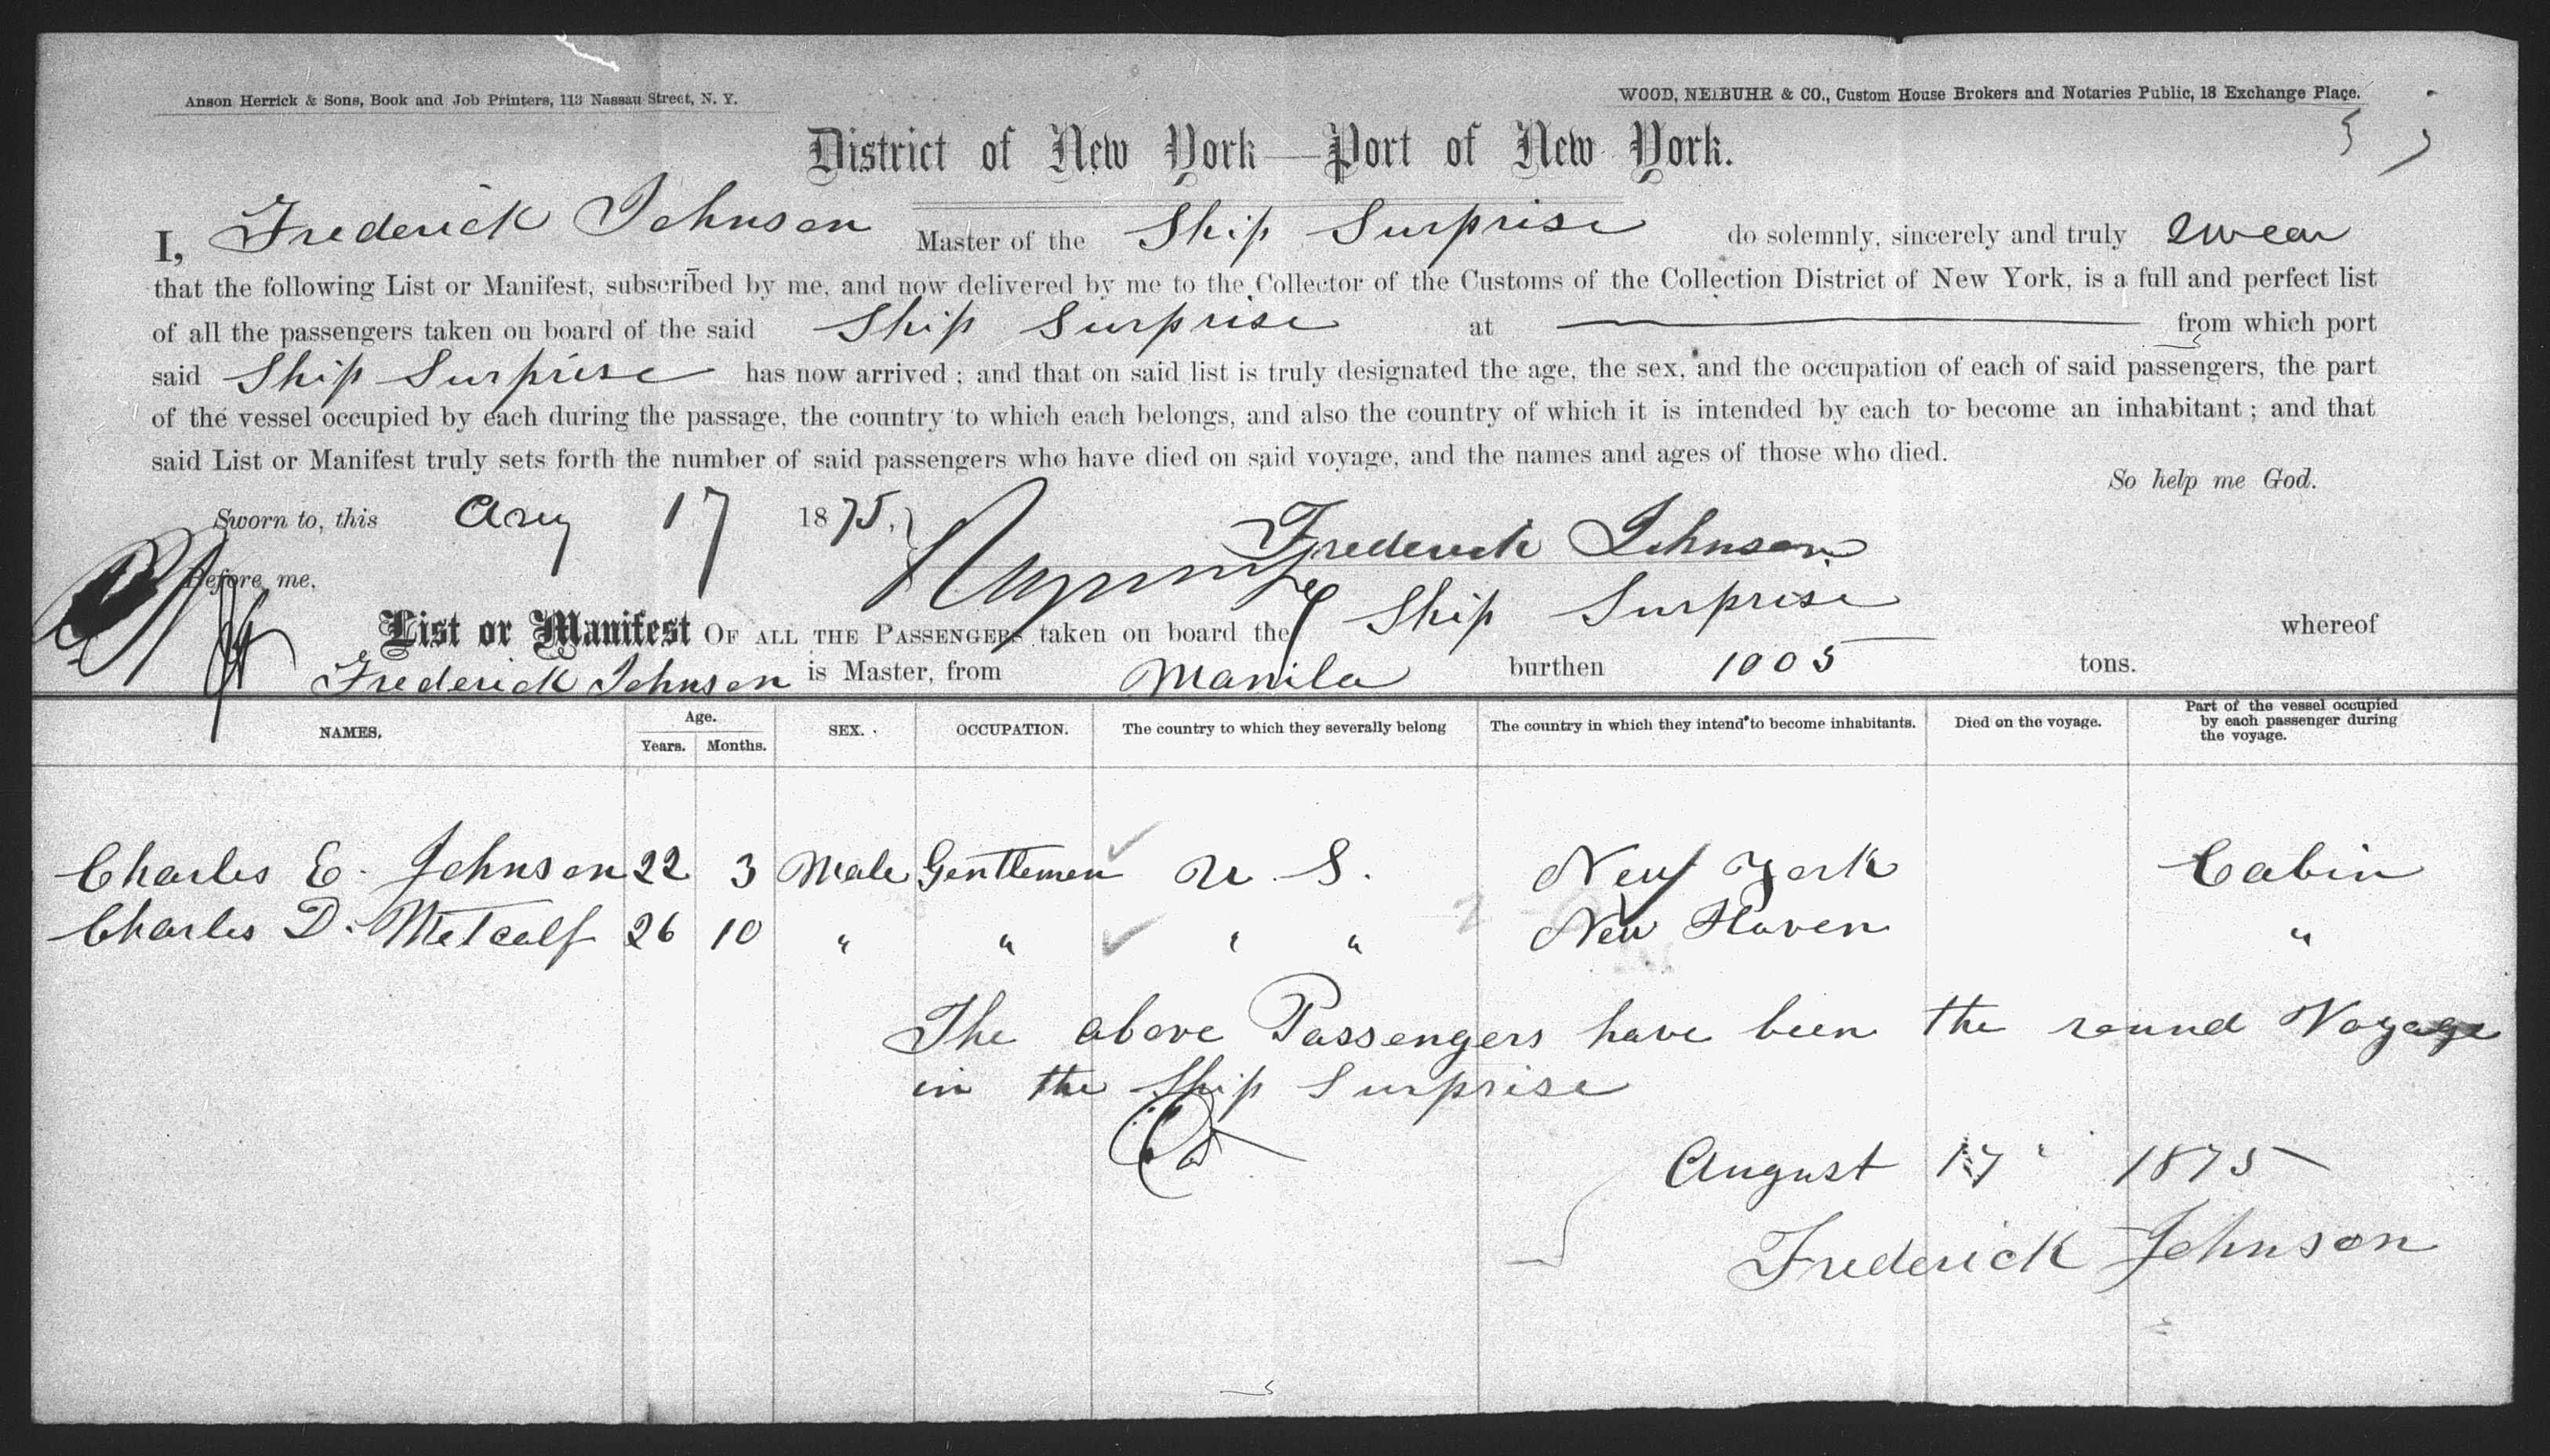 Anson Herrick & Sons, Book and Job Printers, 113 Nassau Street, N. Y.
WOOD, NEIBUHR & CO., Custom House Brokers and Notaries Public, 18 Exchange Place.
District of New York—Port of New York.
I, Frederick Johnson Master of the Ship Surprise do solemnly, sincerely and truly swear
that the following List or Manifest, subscribed by me, and now delivered by me to the Collector of the Customs of the Collection District of New York, is a full and perfect list
of all the passengers taken on board of the said Ship Surprise at — from which port
said Ship Surprise has now arrived; and that on said list is truly designated the age, the sex, and the occupation of each of said passengers, the part
of the vessel occupied by each during the passage, the country to which each belongs, and also the country of which it is intended by each to become an inhabitant; and that
said List or Manifest truly sets forth the number of said passengers who have died on said voyage, and the names and ages of those who died.
So help me God.
Sworn to, this Aug 17 1875,
Frederick Johnson
Before me.
List or Manifest OF ALL THE PASSENGERS taken on board the Ship Surprise whereof
Frederick Johnson is Master, from Manila burthen 1005 tons.
NAMES. Age. Years. Months. SEX. OCCUPATION. The country to which they severally belong The country in which they intend to become inhabitants. Died on the voyage. Part of the vessel occupied by each passenger during the voyage.
Charles E. Johnson 22 3 Male Gentlemen U. S. New York Cabin
Charles D. Metcalf 26 10 " " " " New Haven "
The above Passengers have been the round Voyage
in the Ship Surprise
August 17" 1875
Frederick Johnson